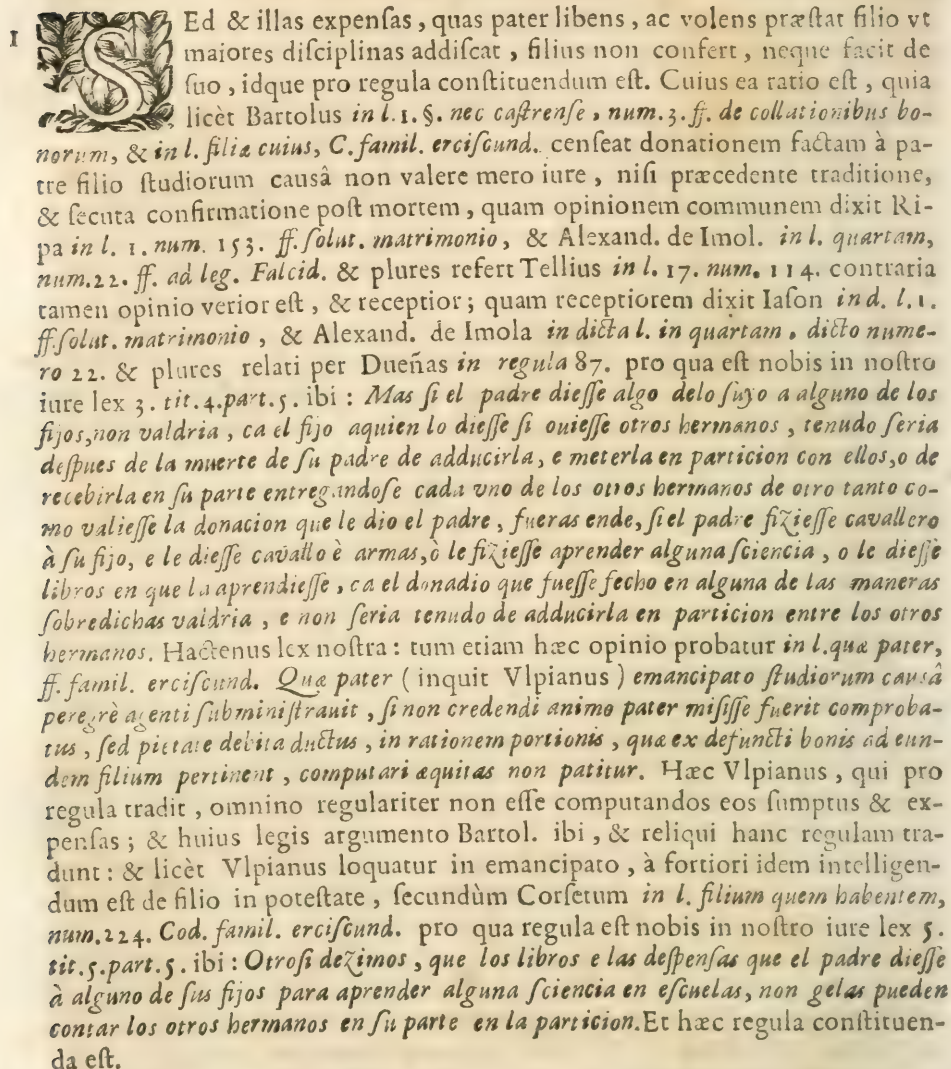 1 SEd & illas expenſas, quas pater libens, ac volens præſtat filio vt
maiores diſciplinas addiſcat, filius non confert, neque facit de
ſuo, idque pro regula conſtituendum eſt. Cuius ea ratio eſt, quia
licèt Bartolus in l. 1. §. nec caſtrenſe, num. 3. ff. de collationibus bo-
norum, & in l. filiæ cuius, C. famil. erciſcund. cenſeat donationem factam à pa-
tre filio ſtudiorum causâ non valere mero iure, niſi præcedente traditione,
& ſecuta confirmatione poſt mortem, quam opinionem communem dixit Ri-
pa in l. 1. num. 153. ff. ſolut. matrimonio, & Alexand. de Imol. in l. quartam,
num. 22. ff. ad leg. Falcid. & plures refert Tellius in l. 17. num. 114. contraria
tamen opinio verior eſt, & receptior; quam receptiorem dixit Iaſon in d. l. 1.
ff. ſolut. matrimonio, & Alexand. de Imola in dicta l. in quartam, dicto nume-
ro 22. & plures relati per Dueñas in regula 87. pro qua eſt nobis in noſtro
iure lex 3. tit. 4. part. 5. ibi: Mas ſi el padre dieſſe algo delo ſuyo a alguno de los
fijos, non valdria, ca el fijo aquien lo dieſſe ſi ouieſſe otros hermanos, tenudo ſeria
deſpues de la muerte de ſu padre de adducirla, e meterla en particion con ellos, o de
recebirla en ſu parte entregandoſe cada vno de los otros hermanos de otro tanto co-
mo valieſſe la donacion que le dio el padre, fueras ende, ſi el padre fizieſſe cavallero
à ſu fijo, e le dieſſe cavallo è armas, ò le fizieſſe aprender alguna ſciencia, o le dieſſe
libros en que la aprendieſſe, ca el donadio que fueſſe fecho en alguna de las maneras
ſobredichas valdria, e non ſeria tenudo de adducirla en particion entre los otros
hermanos. Hactenus lex noſtra: tum etiam hæc opinio probatur in l. quæ pater,
ff. famil. erciſcund. Quæ pater (inquit Vlpianus) emancipato ſtudiorum causâ
peregrè agenti ſubminiſtrauit, ſi non credendi animo pater miſiſſe fuerit comproba-
tus, ſed pietate debita ductus, in rationem portionis, quæ ex defuncti bonis ad eun-
dem filium pertinent, computari æquitas non patitur. Hæc Vlpianus, qui pro
regula tradit, omnino regulariter non eſſe computandos eos ſumptus & ex-
penſas; & huius legis argumento Bartol. ibi, & reliqui hanc regulam tra-
dunt: & licèt Vlpianus loquatur in emancipato, à fortiori idem intelligen-
dum eſt de filio in poteſtate, ſecundùm Corſetum in l. filium quem habentem,
num. 224. Cod. famil. erciſcund. pro qua regula eſt nobis in noſtro iure lex 5.
tit. 5. part. 5. ibi: Otroſi dezimos, que los libros e las deſpenſas que el padre dieſſe
à alguno de ſus fijos para aprender alguna ſciencia en eſcuelas, non gelas pueden
contar los otros hermanos en ſu parte en la particion. Et hæc regula conſtituen-
da eſt.